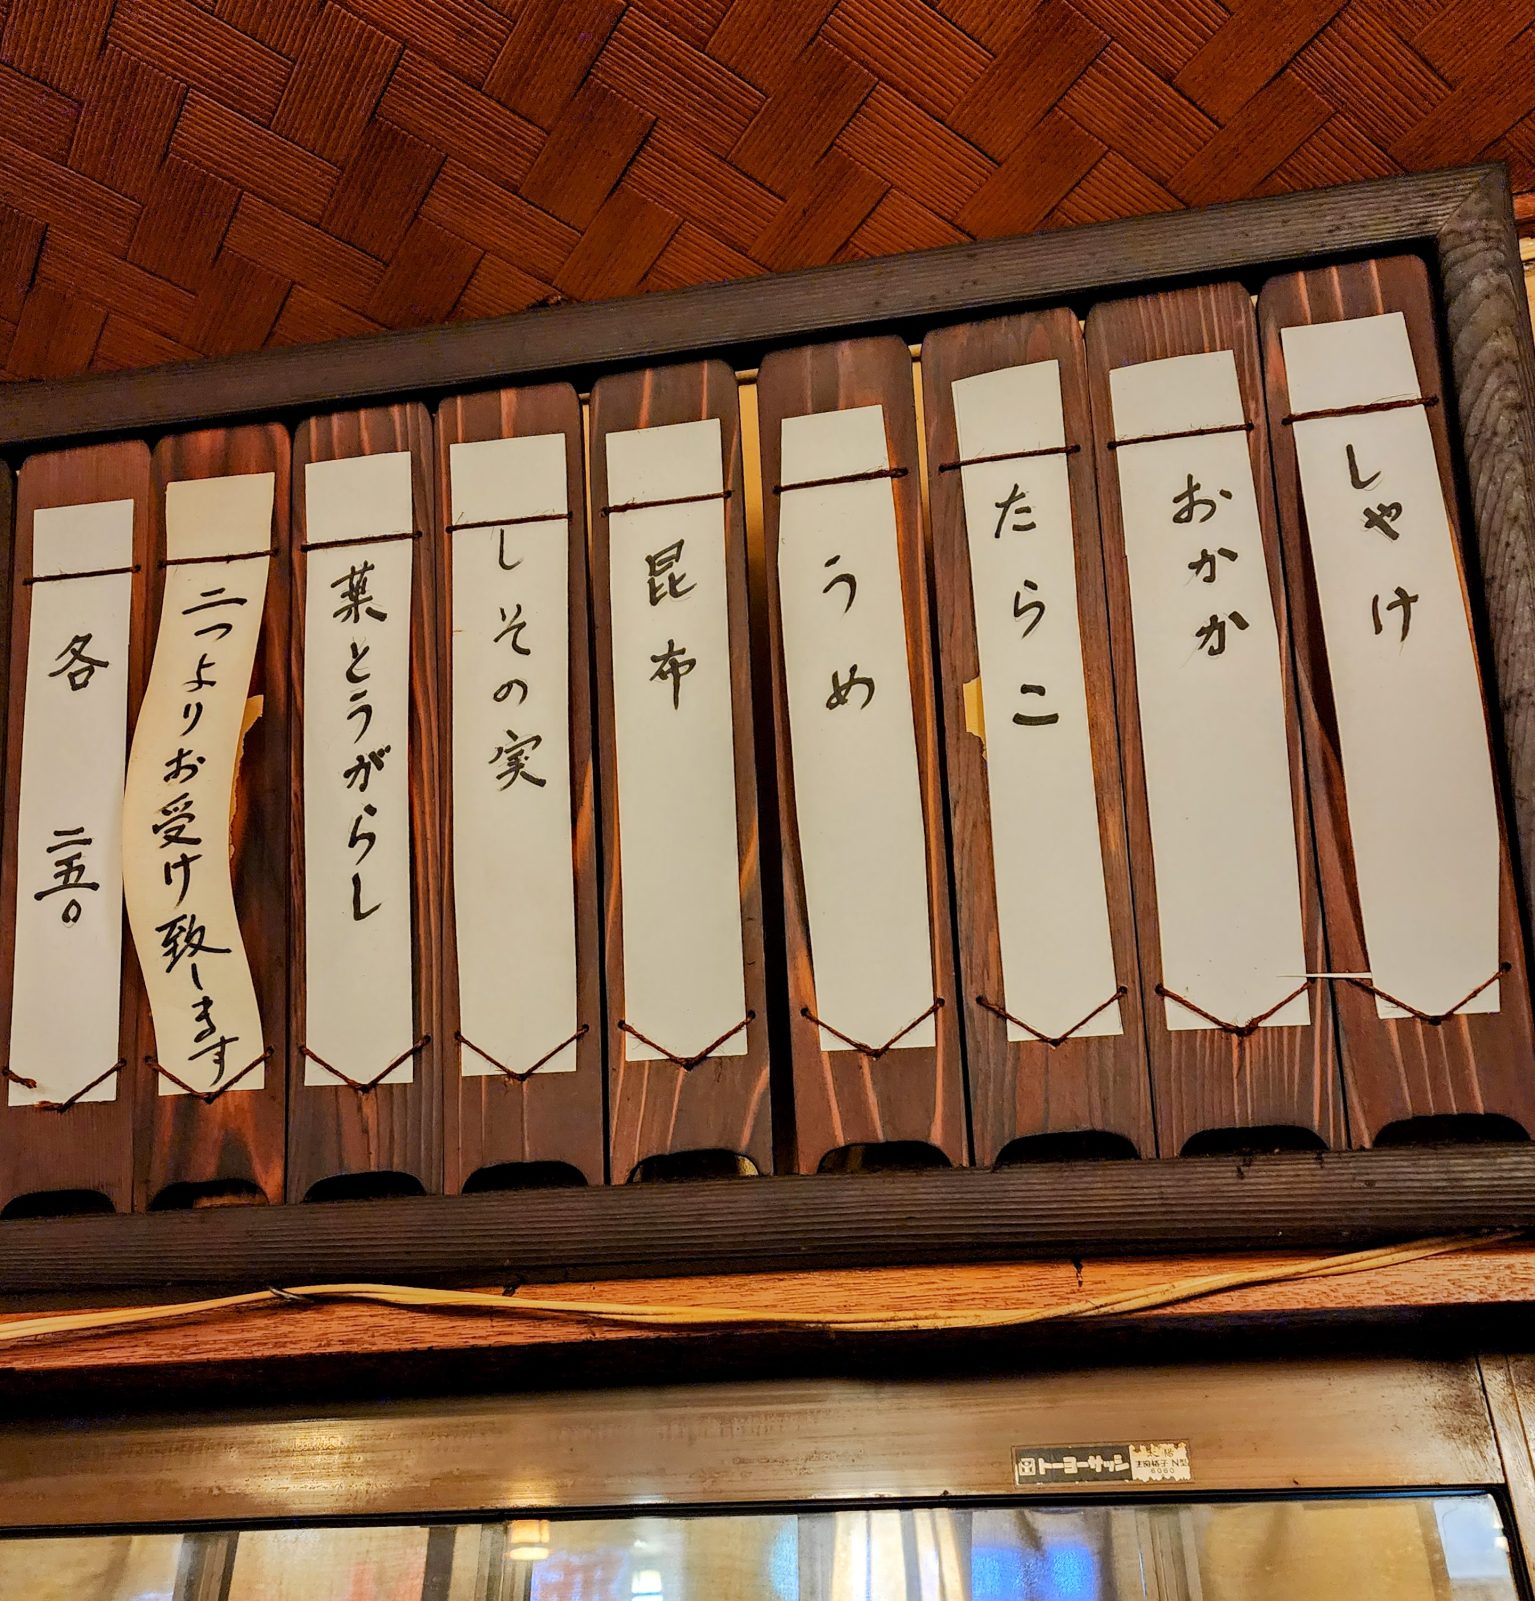 しゃけ
おかか
たらこ
うめ
昆布
しその実
葉とうがらし
二つよりお受け致します
各 二五〇
トーヨーサッシ